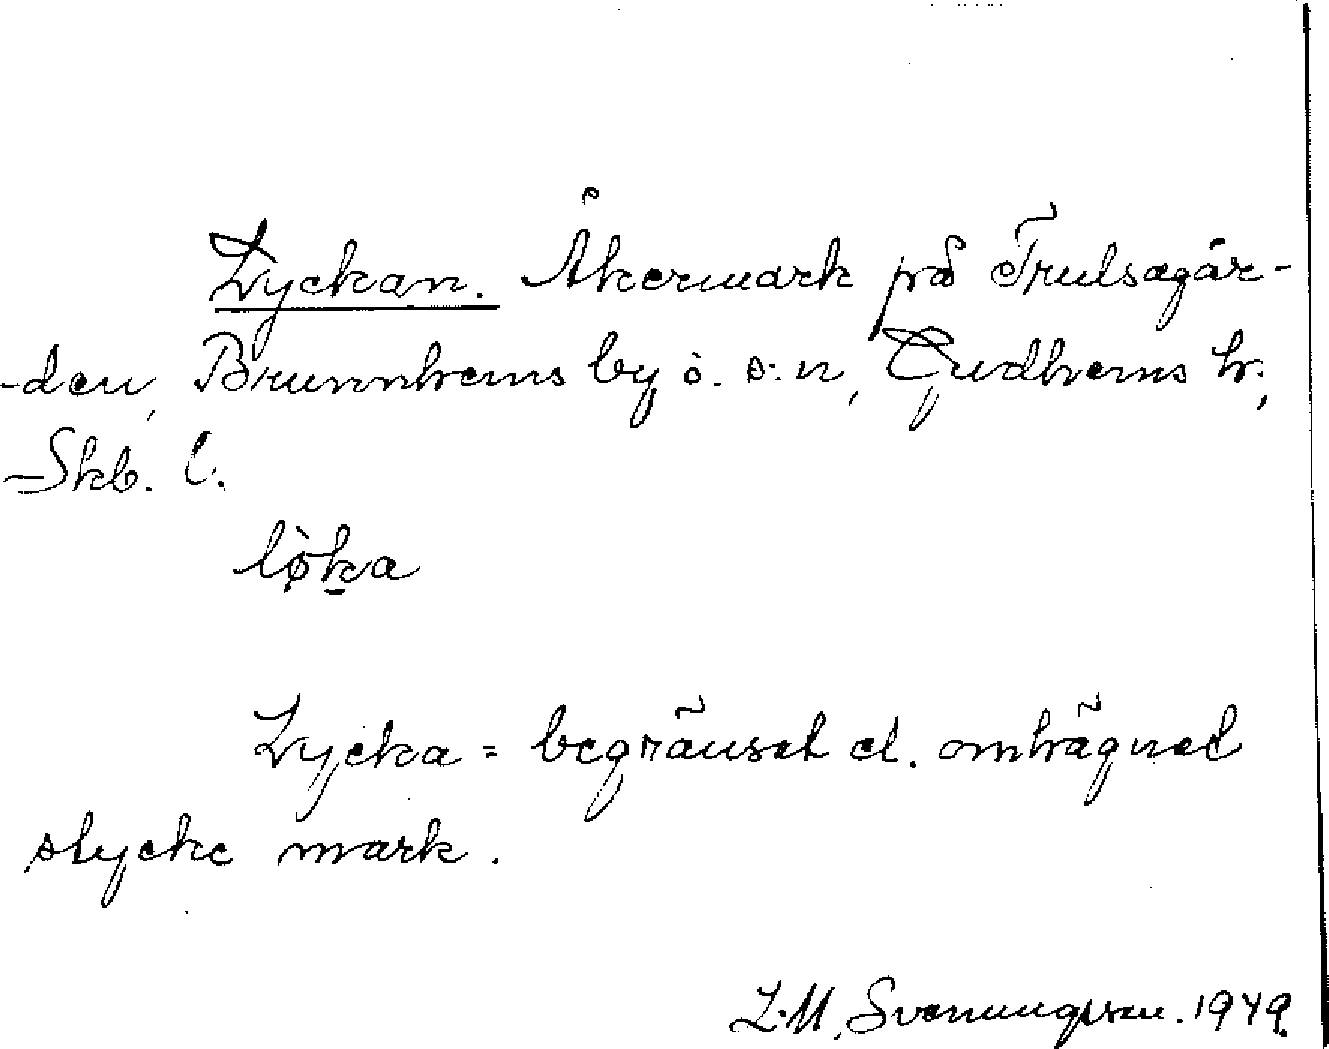 Lyckan. Åkermark på Trulsagår-
-den, Brunnhems by o. s:n, Gudhems h:,
Skb. l.
lø̀ka
Lycka = begränsat el. omhägnad
stycke mark.
L.M. Svenungsson. 1949.